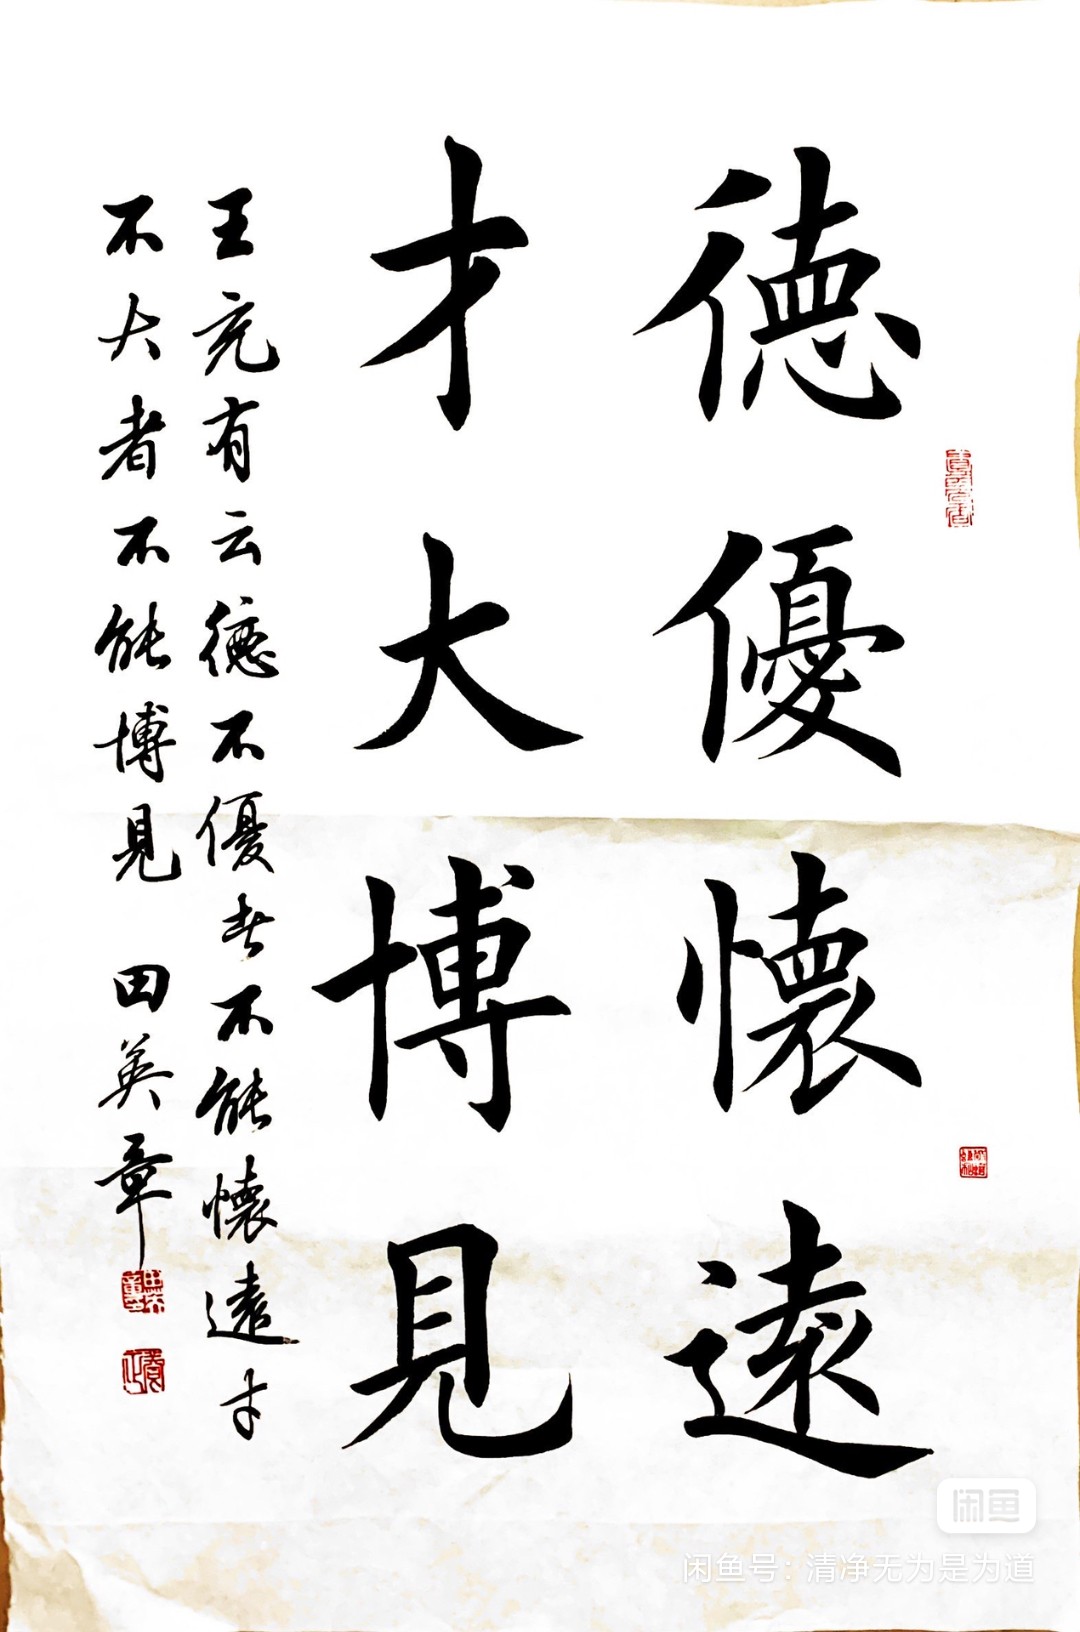 德優懷遠
才大博見
王充有云德不優者不能懷遠才
不大者不能博見 田英章
闲鱼
闲鱼号：清净无为是为道